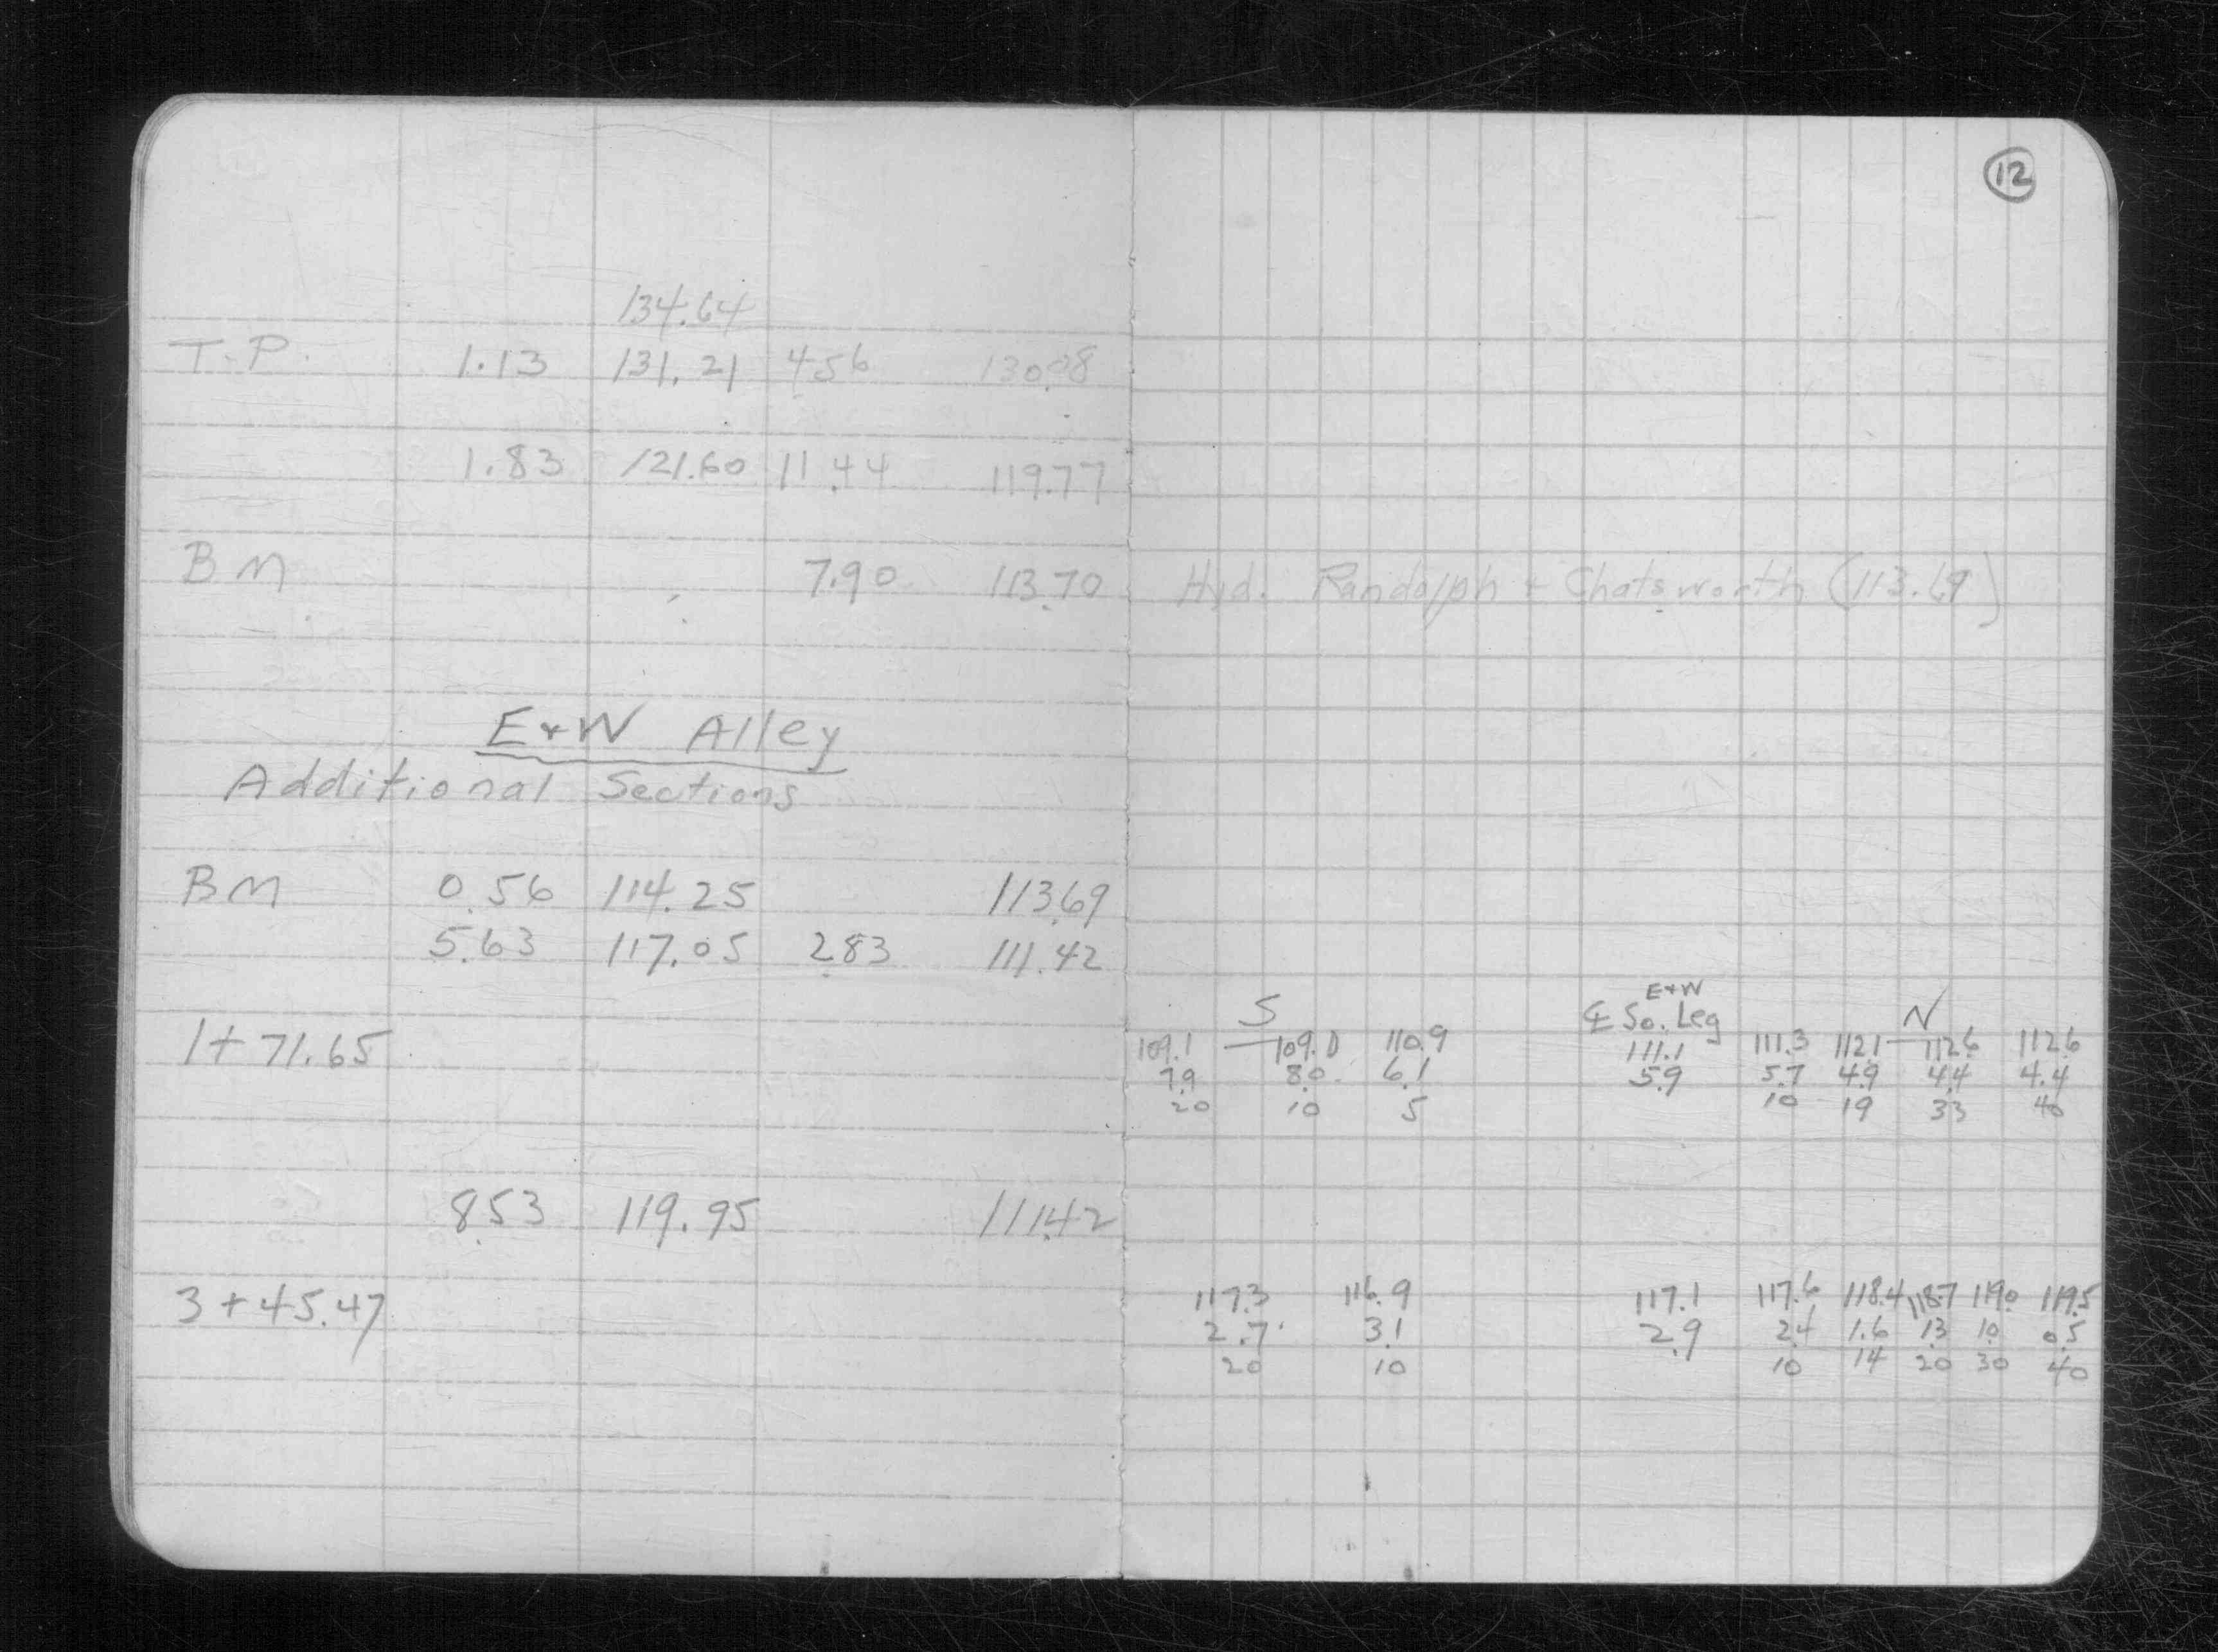 12
134.64
T.P. 1.13 131.21 4.56 130.08
1.83 121.60 11.44 119.77
BM 7.90 113.70 Hyd. Randolph + Chatsworth (113.69)
E+W Alley
Additional Sections
BM 0.56 114.25 113.69
5.63 117.05 2.83 111.42
E+W
S ℄ So. Leg N
1+71.65 109.1 109.0 110.9 111.1 111.3 112.1 112.6 112.6
7.9 8.0 6.1 5.9 5.7 4.9 4.4 4.4
20 10 5 10 19 33 40
8.53 119.95 111.42
3+45.47 117.3 116.9 117.1 117.6 118.4 118.7 119.0 119.5
2.7 3.1 2.9 2.4 1.6 1.3 1.0 0.5
20 10 10 14 20 30 40